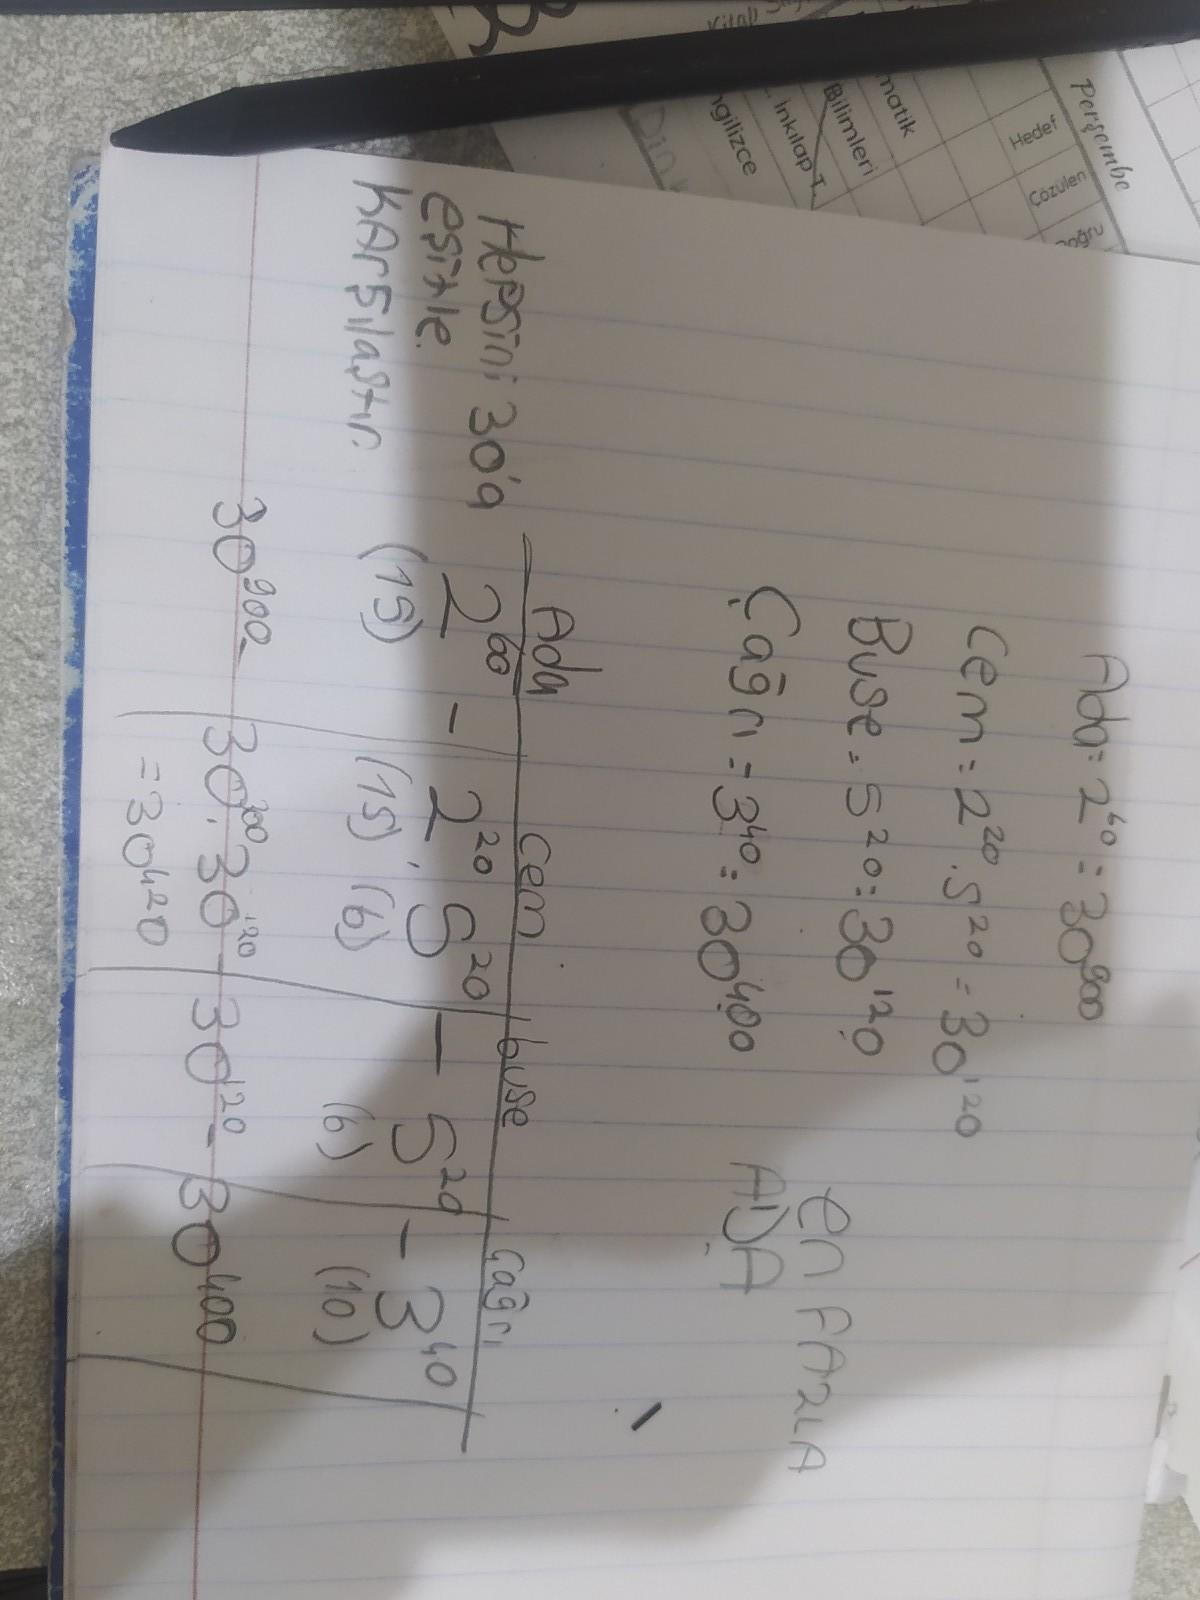 Perşembe
Hedef
Çözülen
matik
Bilimleri
İnkılap T.
Ada = 2⁴⁰ = 30⁹⁰⁰
Cem = 2²⁰ . 5²⁰ = 30¹²⁰
Buse = 5²⁰ = 30¹²⁰
Çağrı = 3⁴⁰ = 30⁴⁰⁰
en FAZLA
ADA
Hepsini 30'a
eşitle.
KArşılaştır.
Ada Cem buse Çağrı
2⁶⁰ - 2²⁰ . 5²⁰ - 5²⁰ - 3⁴⁰
(15) (15) (6) (6) (10)
30⁹⁰⁰ - 30³⁰⁰ . 30¹²⁰ - 30¹²⁰ - 30⁴⁰⁰
= 30⁴²⁰